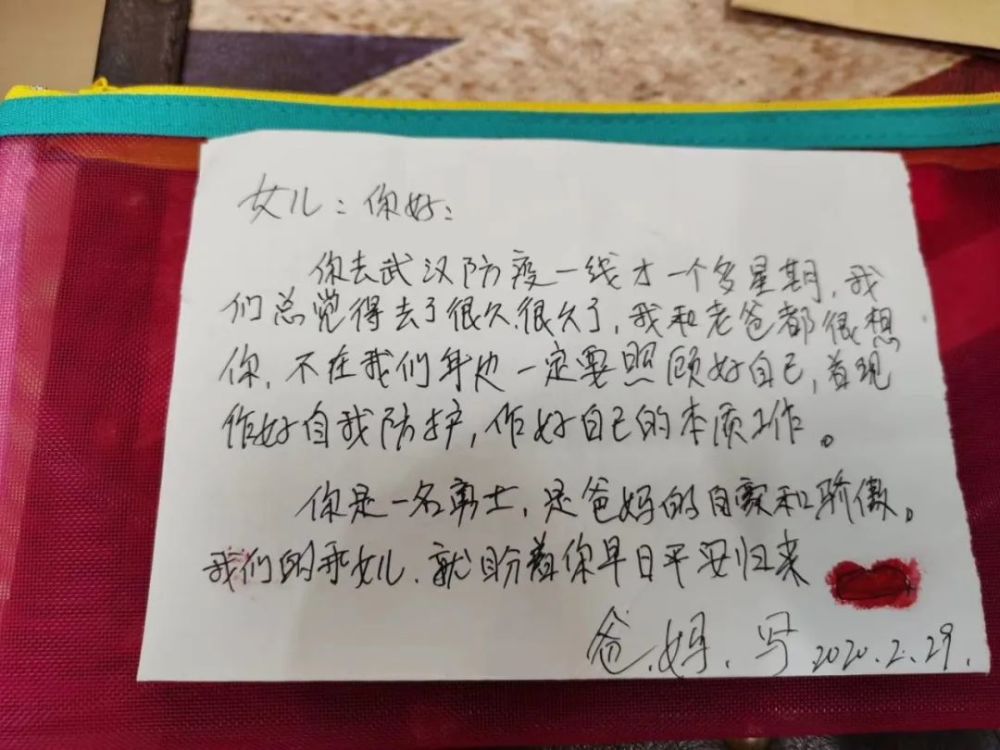 女儿:你好:
你去武汉防疫一线才一个多星期,我
们总觉得去了很久.很久了,我和老爸都很想
你,不在我们身边一定要照顾好自己,首现
作好自我防护,作好自己的本质工作。
你是一名勇士,是爸妈的自豪和骄傲。
我们的乖女儿.就盼着你早日平安归来
爸.妈.写2020.2.29.